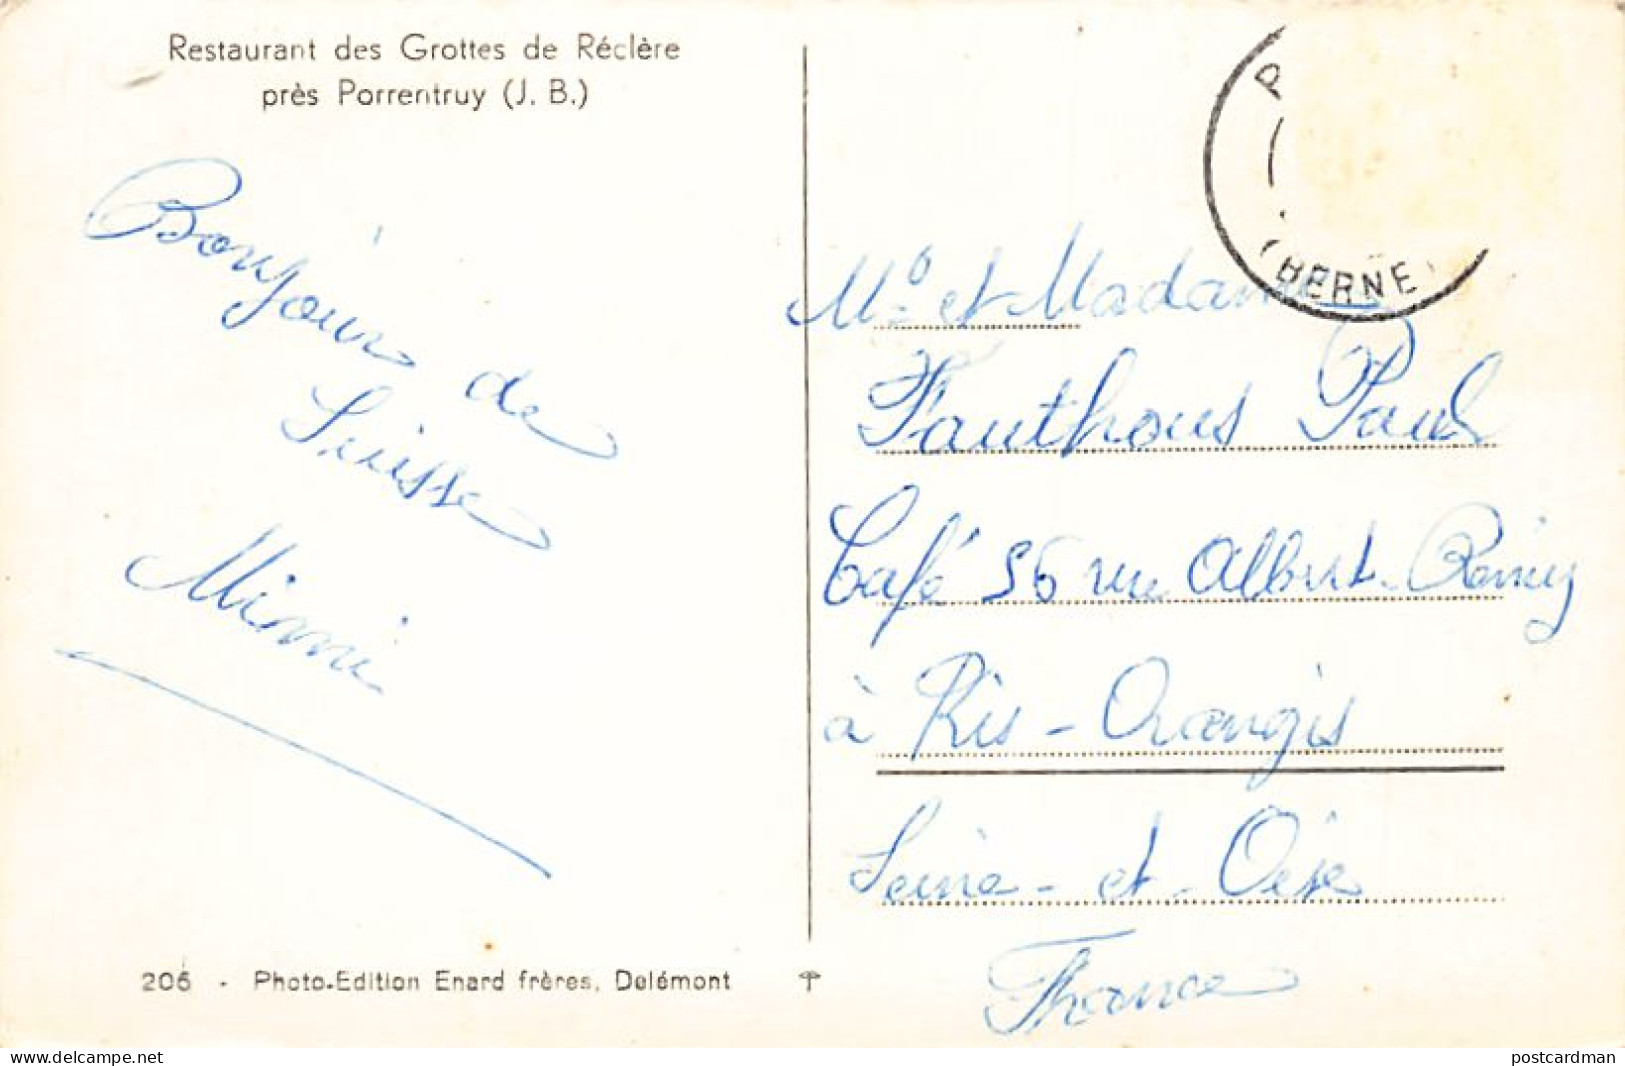 Restaurant des Grottes de Réclère
près Porrentruy (J. B.)
Bonjour de
Suisse
Mimi
206 - Photo-Edition Enard frères, Delémont
P
(BERNE)
Mr et Madame
Fauthous Paul
Café 56 rue Albert-Rémy
à Ris-Orangis
Seine-et-Oise
France
www.delcampe.net
postcardman